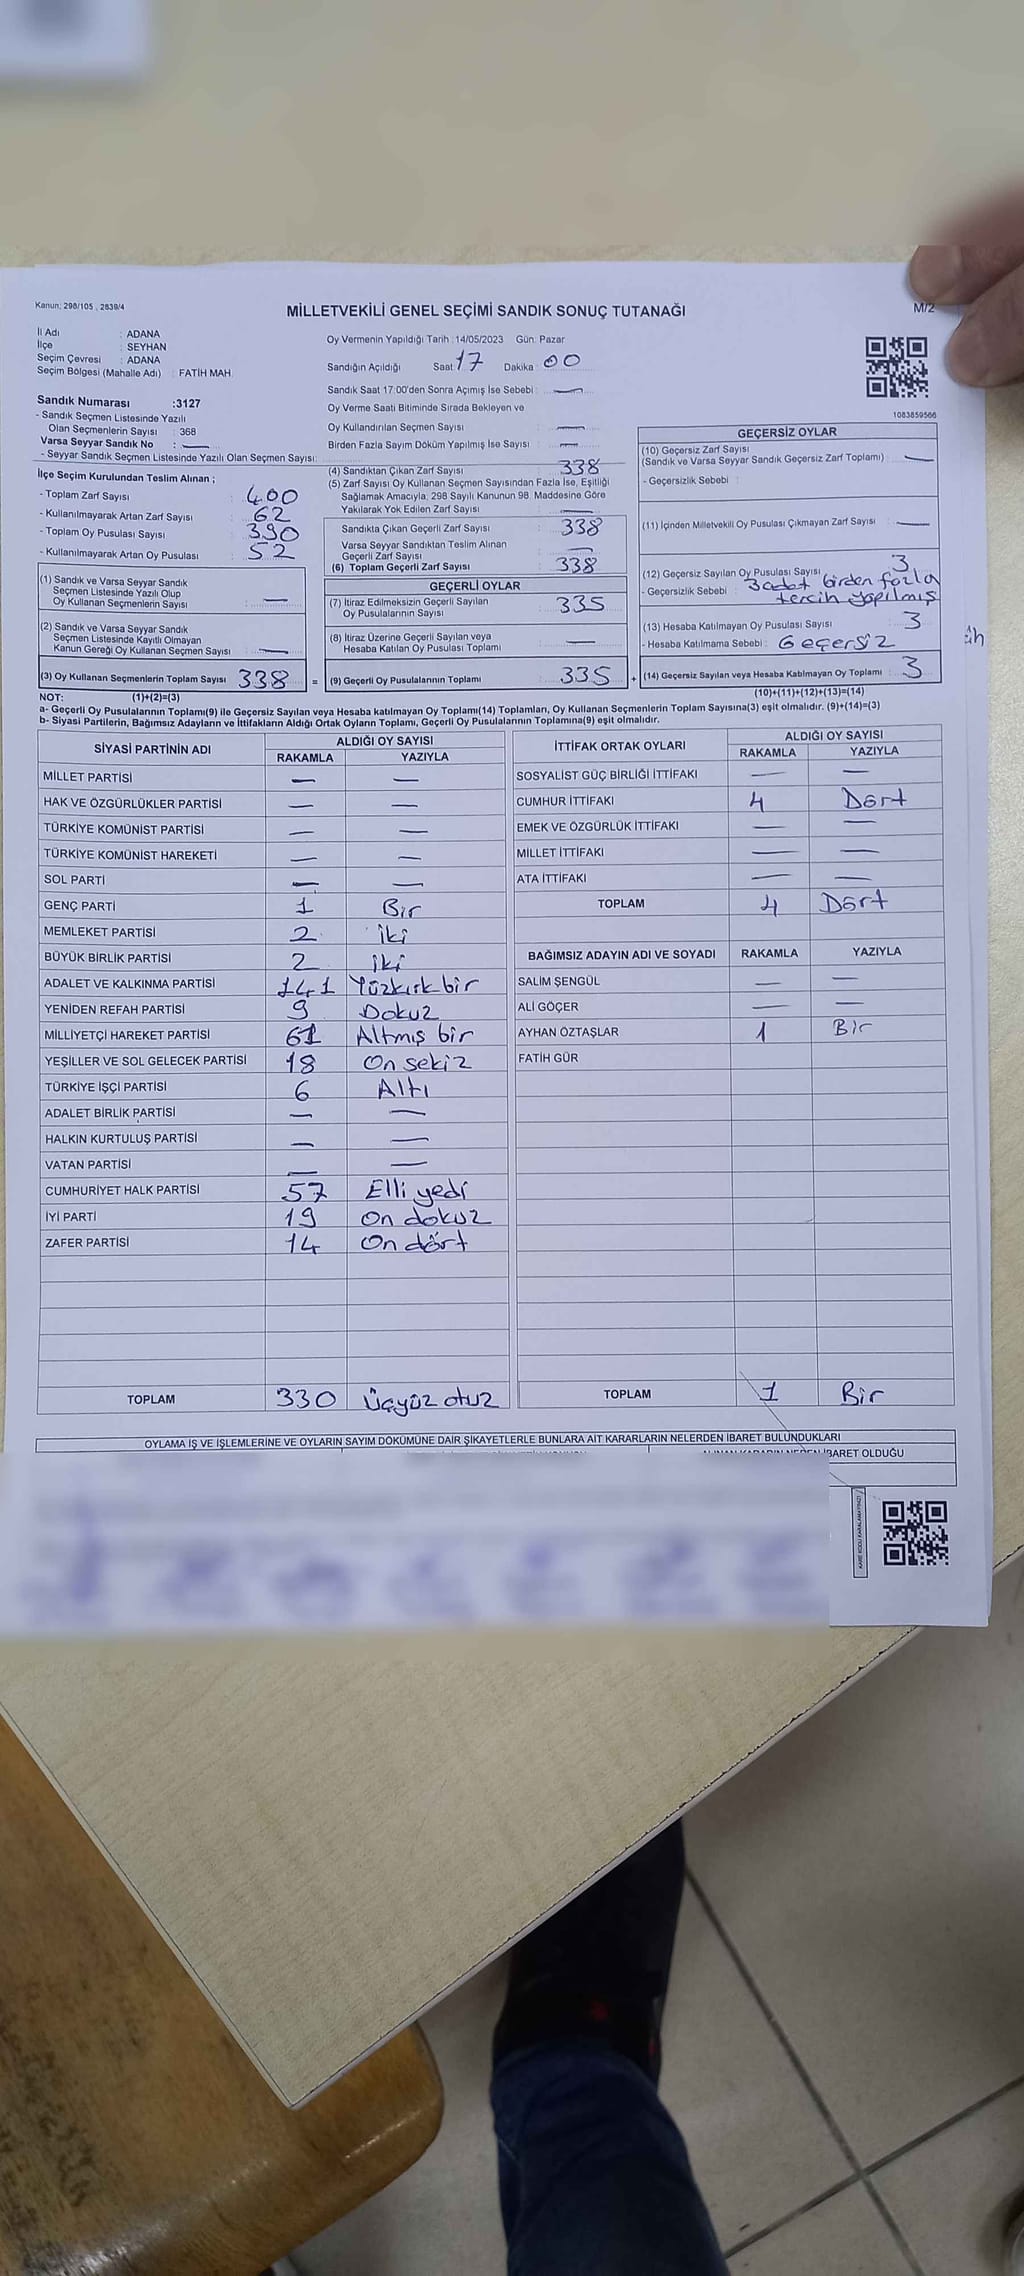 Kanun: 298/105 , 2839/4
MİLLETVEKİLİ GENEL SEÇİMİ SANDIK SONUÇ TUTANAĞI
M/2
İl Adı : ADANA
İlçe : SEYHAN
Seçim Çevresi : ADANA
Seçim Bölgesi (Mahalle Adı) : FATİH MAH.
Sandık Numarası :3127
- Sandık Seçmen Listesinde Yazılı
Olan Seçmenlerin Sayısı : 368
Varsa Seyyar Sandık No : —
- Seyyar Sandık Seçmen Listesinde Yazılı Olan Seçmen Sayısı:
Oy Vermenin Yapıldığı Tarih :14/05/2023 Gün: Pazar
Sandığın Açıldığı Saat: 17 Dakika : 00
Sandık Saat 17:00'den Sonra Açımış İse Sebebi : —
Oy Verme Saati Bitiminde Sırada Bekleyen ve
Oy Kullandırılan Seçmen Sayısı : —
Birden Fazla Sayım Döküm Yapılmış İse Sayısı : —
1083859566
İlçe Seçim Kurulundan Teslim Alınan ;
- Toplam Zarf Sayısı : 400
- Kullanılmayarak Artan Zarf Sayısı : 62
- Toplam Oy Pusulası Sayısı : 390
- Kullanılmayarak Artan Oy Pusulası : 52
(1) Sandık ve Varsa Seyyar Sandık
Seçmen Listesinde Yazılı Olup
Oy Kullanan Seçmenlerin Sayısı : —
(2) Sandık ve Varsa Seyyar Sandık
Seçmen Listesinde Kayıtlı Olmayan
Kanun Gereği Oy Kullanan Seçmen Sayısı : —
(3) Oy Kullanan Seçmenlerin Toplam Sayısı 338 =
(4) Sandıktan Çıkan Zarf Sayısı : 338
(5) Zarf Sayısı Oy Kullanan Seçmen Sayısından Fazla İse, Eşitliği
Sağlamak Amacıyla, 298 Sayılı Kanunun 98. Maddesine Göre
Yakılarak Yok Edilen Zarf Sayısı : —
Sandıkta Çıkan Geçerli Zarf Sayısı : 338
Varsa Seyyar Sandıktan Teslim Alınan
Geçerli Zarf Sayısı : —
(6) Toplam Geçerli Zarf Sayısı : 338
GEÇERLİ OYLAR
(7) İtiraz Edilmeksizin Geçerli Sayılan
Oy Pusulalarının Sayısı : 335
(8) İtiraz Üzerine Geçerli Sayılan veya
Hesaba Katılan Oy Pusulası Toplamı : —
(9) Geçerli Oy Pusulalarının Toplamı : 335 +
GEÇERSİZ OYLAR
(10) Geçersiz Zarf Sayısı
(Sandık ve Varsa Seyyar Sandık Geçersiz Zarf Toplamı) : —
- Geçersizlik Sebebi :
(11) İçinden Milletvekili Oy Pusulası Çıkmayan Zarf Sayısı : —
(12) Geçersiz Sayılan Oy Pusulası Sayısı : 3
- Geçersizlik Sebebi : 3 adet birden fazla
tercih yapılmış
(13) Hesaba Katılmayan Oy Pusulası Sayısı : 3
- Hesaba Katılmama Sebebi : Geçersiz
(14) Geçersiz Sayılan veya Hesaba Katılmayan Oy Toplamı : 3
NOT: (1)+(2)=(3)
(10)+(11)+(12)+(13)=(14)
a- Geçerli Oy Pusulalarının Toplamı(9) ile Geçersiz Sayılan veya Hesaba katılmayan Oy Toplamı(14) Toplamları, Oy Kullanan Seçmenlerin Toplam Sayısına(3) eşit olmalıdır. (9)+(14)=(3)
b- Siyasi Partilerin, Bağımsız Adayların ve İttifakların Aldığı Ortak Oyların Toplamı, Geçerli Oy Pusulalarının Toplamına(9) eşit olmalıdır.
SİYASİ PARTİNİN ADI ALDIĞI OY SAYISI
RAKAMLA YAZIYLA
MİLLET PARTİSİ — —
HAK VE ÖZGÜRLÜKLER PARTİSİ — —
TÜRKİYE KOMÜNİST PARTİSİ — —
TÜRKİYE KOMÜNİST HAREKETİ — —
SOL PARTİ — —
GENÇ PARTİ 1 Bir
MEMLEKET PARTİSİ 2 İki
BÜYÜK BİRLİK PARTİSİ 2 İki
ADALET VE KALKINMA PARTİSİ 141 Yüzkırk bir
YENİDEN REFAH PARTİSİ 9 Dokuz
MİLLİYETÇİ HAREKET PARTİSİ 61 Altmış bir
YEŞİLLER VE SOL GELECEK PARTİSİ 18 On sekiz
TÜRKİYE İŞÇİ PARTİSİ 6 Altı
ADALET BİRLİK PARTİSİ — —
HALKIN KURTULUŞ PARTİSİ — —
VATAN PARTİSİ — —
CUMHURİYET HALK PARTİSİ 57 Elli yedi
İYİ PARTİ 19 On dokuz
ZAFER PARTİSİ 14 On dört
TOPLAM 330 Üçyüz otuz
İTTİFAK ORTAK OYLARI ALDIĞI OY SAYISI
RAKAMLA YAZIYLA
SOSYALİST GÜÇ BİRLİĞİ İTTİFAKI — —
CUMHUR İTTİFAKI 4 Dört
EMEK VE ÖZGÜRLÜK İTTİFAKI — —
MİLLET İTTİFAKI — —
ATA İTTİFAKI — —
TOPLAM 4 Dört
BAĞIMSIZ ADAYIN ADI VE SOYADI RAKAMLA YAZIYLA
SALİM ŞENGÜL — —
ALİ GÖÇER — —
AYHAN ÖZTAŞLAR 1 Bir
FATİH GÜR
TOPLAM 1 Bir
OYLAMA İŞ VE İŞLEMLERİNE VE OYLARIN SAYIM DÖKÜMÜNE DAİR ŞİKAYETLERLE BUNLARA AİT KARARLARIN NELERDEN İBARET BULUNDUKLARI
ALINAN KARARIN NEDEN İBARET OLDUĞU
KARE KODU KARALAMAYINIZ!